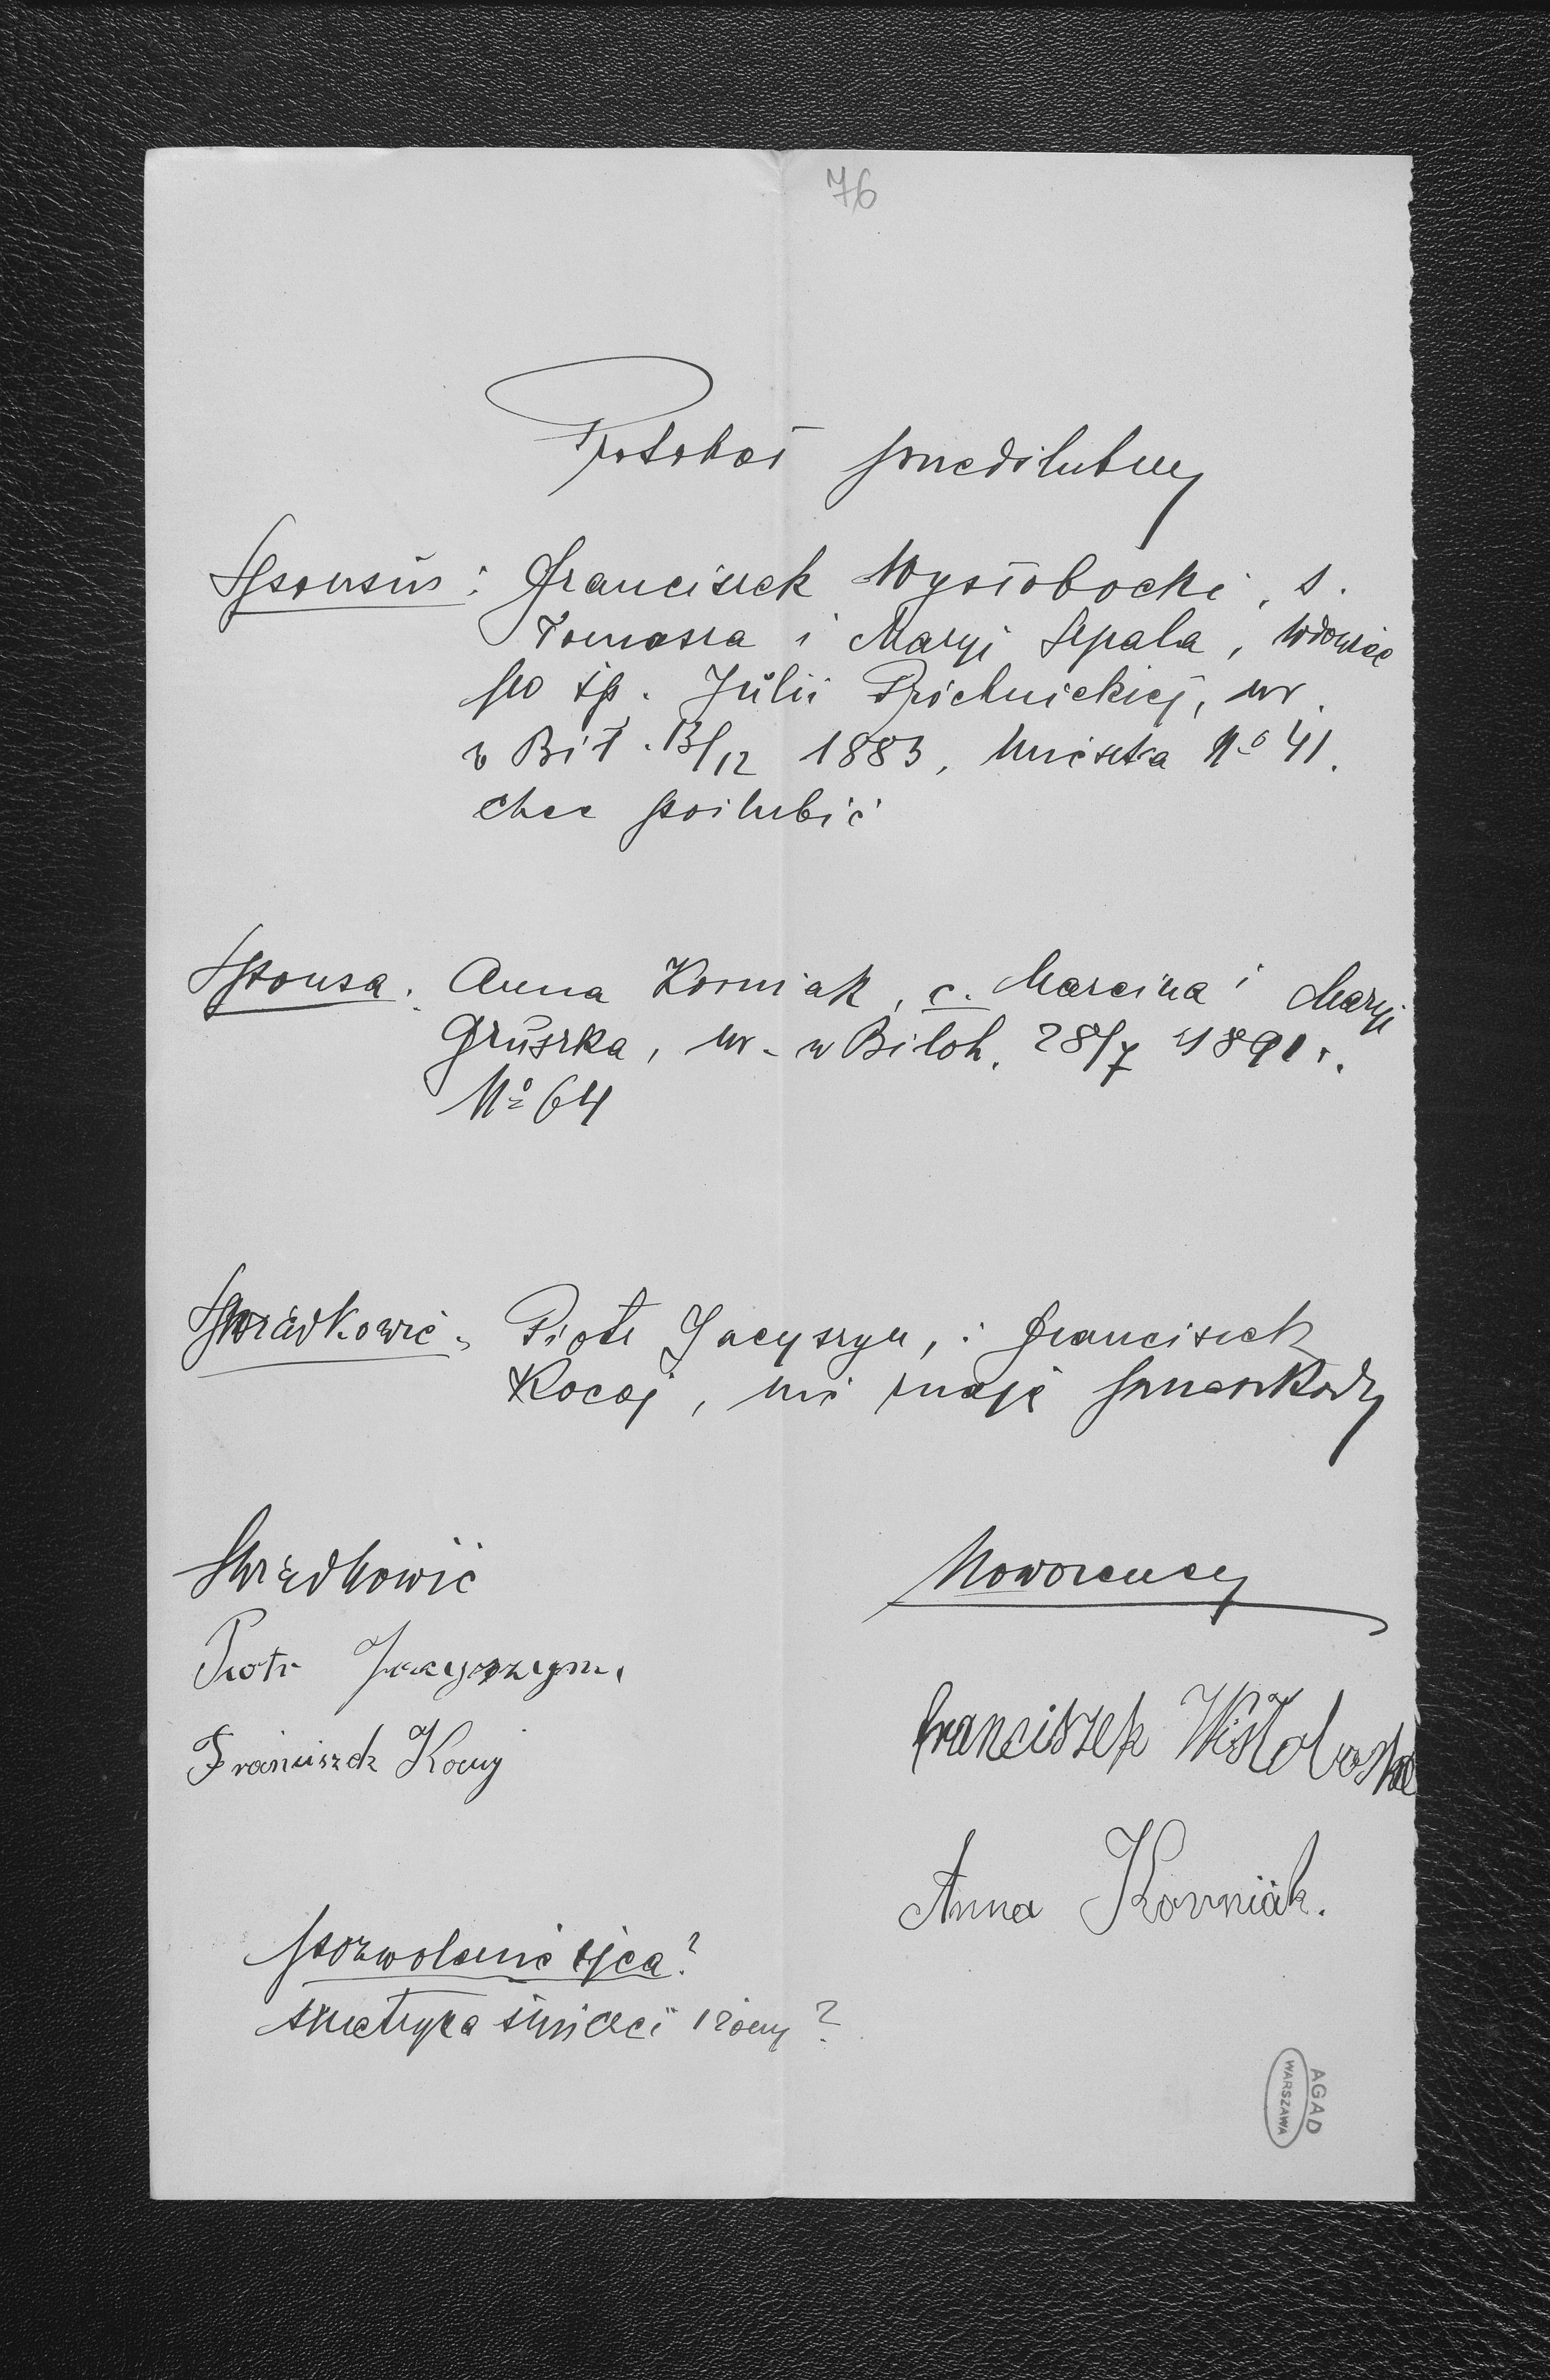 76
Protokół przedślubny
Sponsus: Franciszek Wysłobocki, s.
Tomasza i Maryi Szpala, wdowiec
po śp. Julii Próchnickiej, ur.
w Bił. 13/12 1883, mieszka No 41.
chce poślubić
Sponsa. Anna Korniak, c. Marcina i Maryi
Gruszka, ur. w Biłoh. 28/7 1891 r.
No 64
Świadkowie. Piotr Jacyszyn, i Franciszek
Kocaj, nie znają przeszkody
Świadkowie
Nowożeńcy
Piotr Jacyszyn.
Franciszek Kocaj
Franciszek
Anna Korniak.
pozwolenie ojca?
metryka śmierci i żony?
AGAD
WARSZAWA